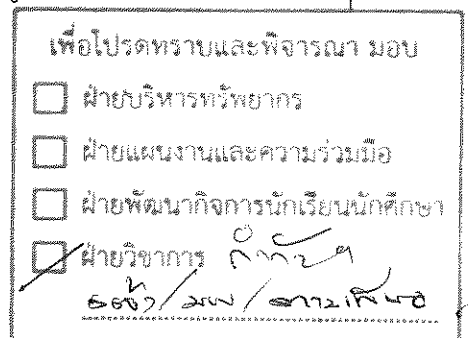 เพื่อโปรดทราบและพิจารณา มอบ
ฝ่ายบริหารทรัพยากร
ฝ่ายแผนงานและความร่วมมือ
ฝ่ายพัฒนากิจการนักเรียนนักศึกษา
ฝ่ายวิชาการ